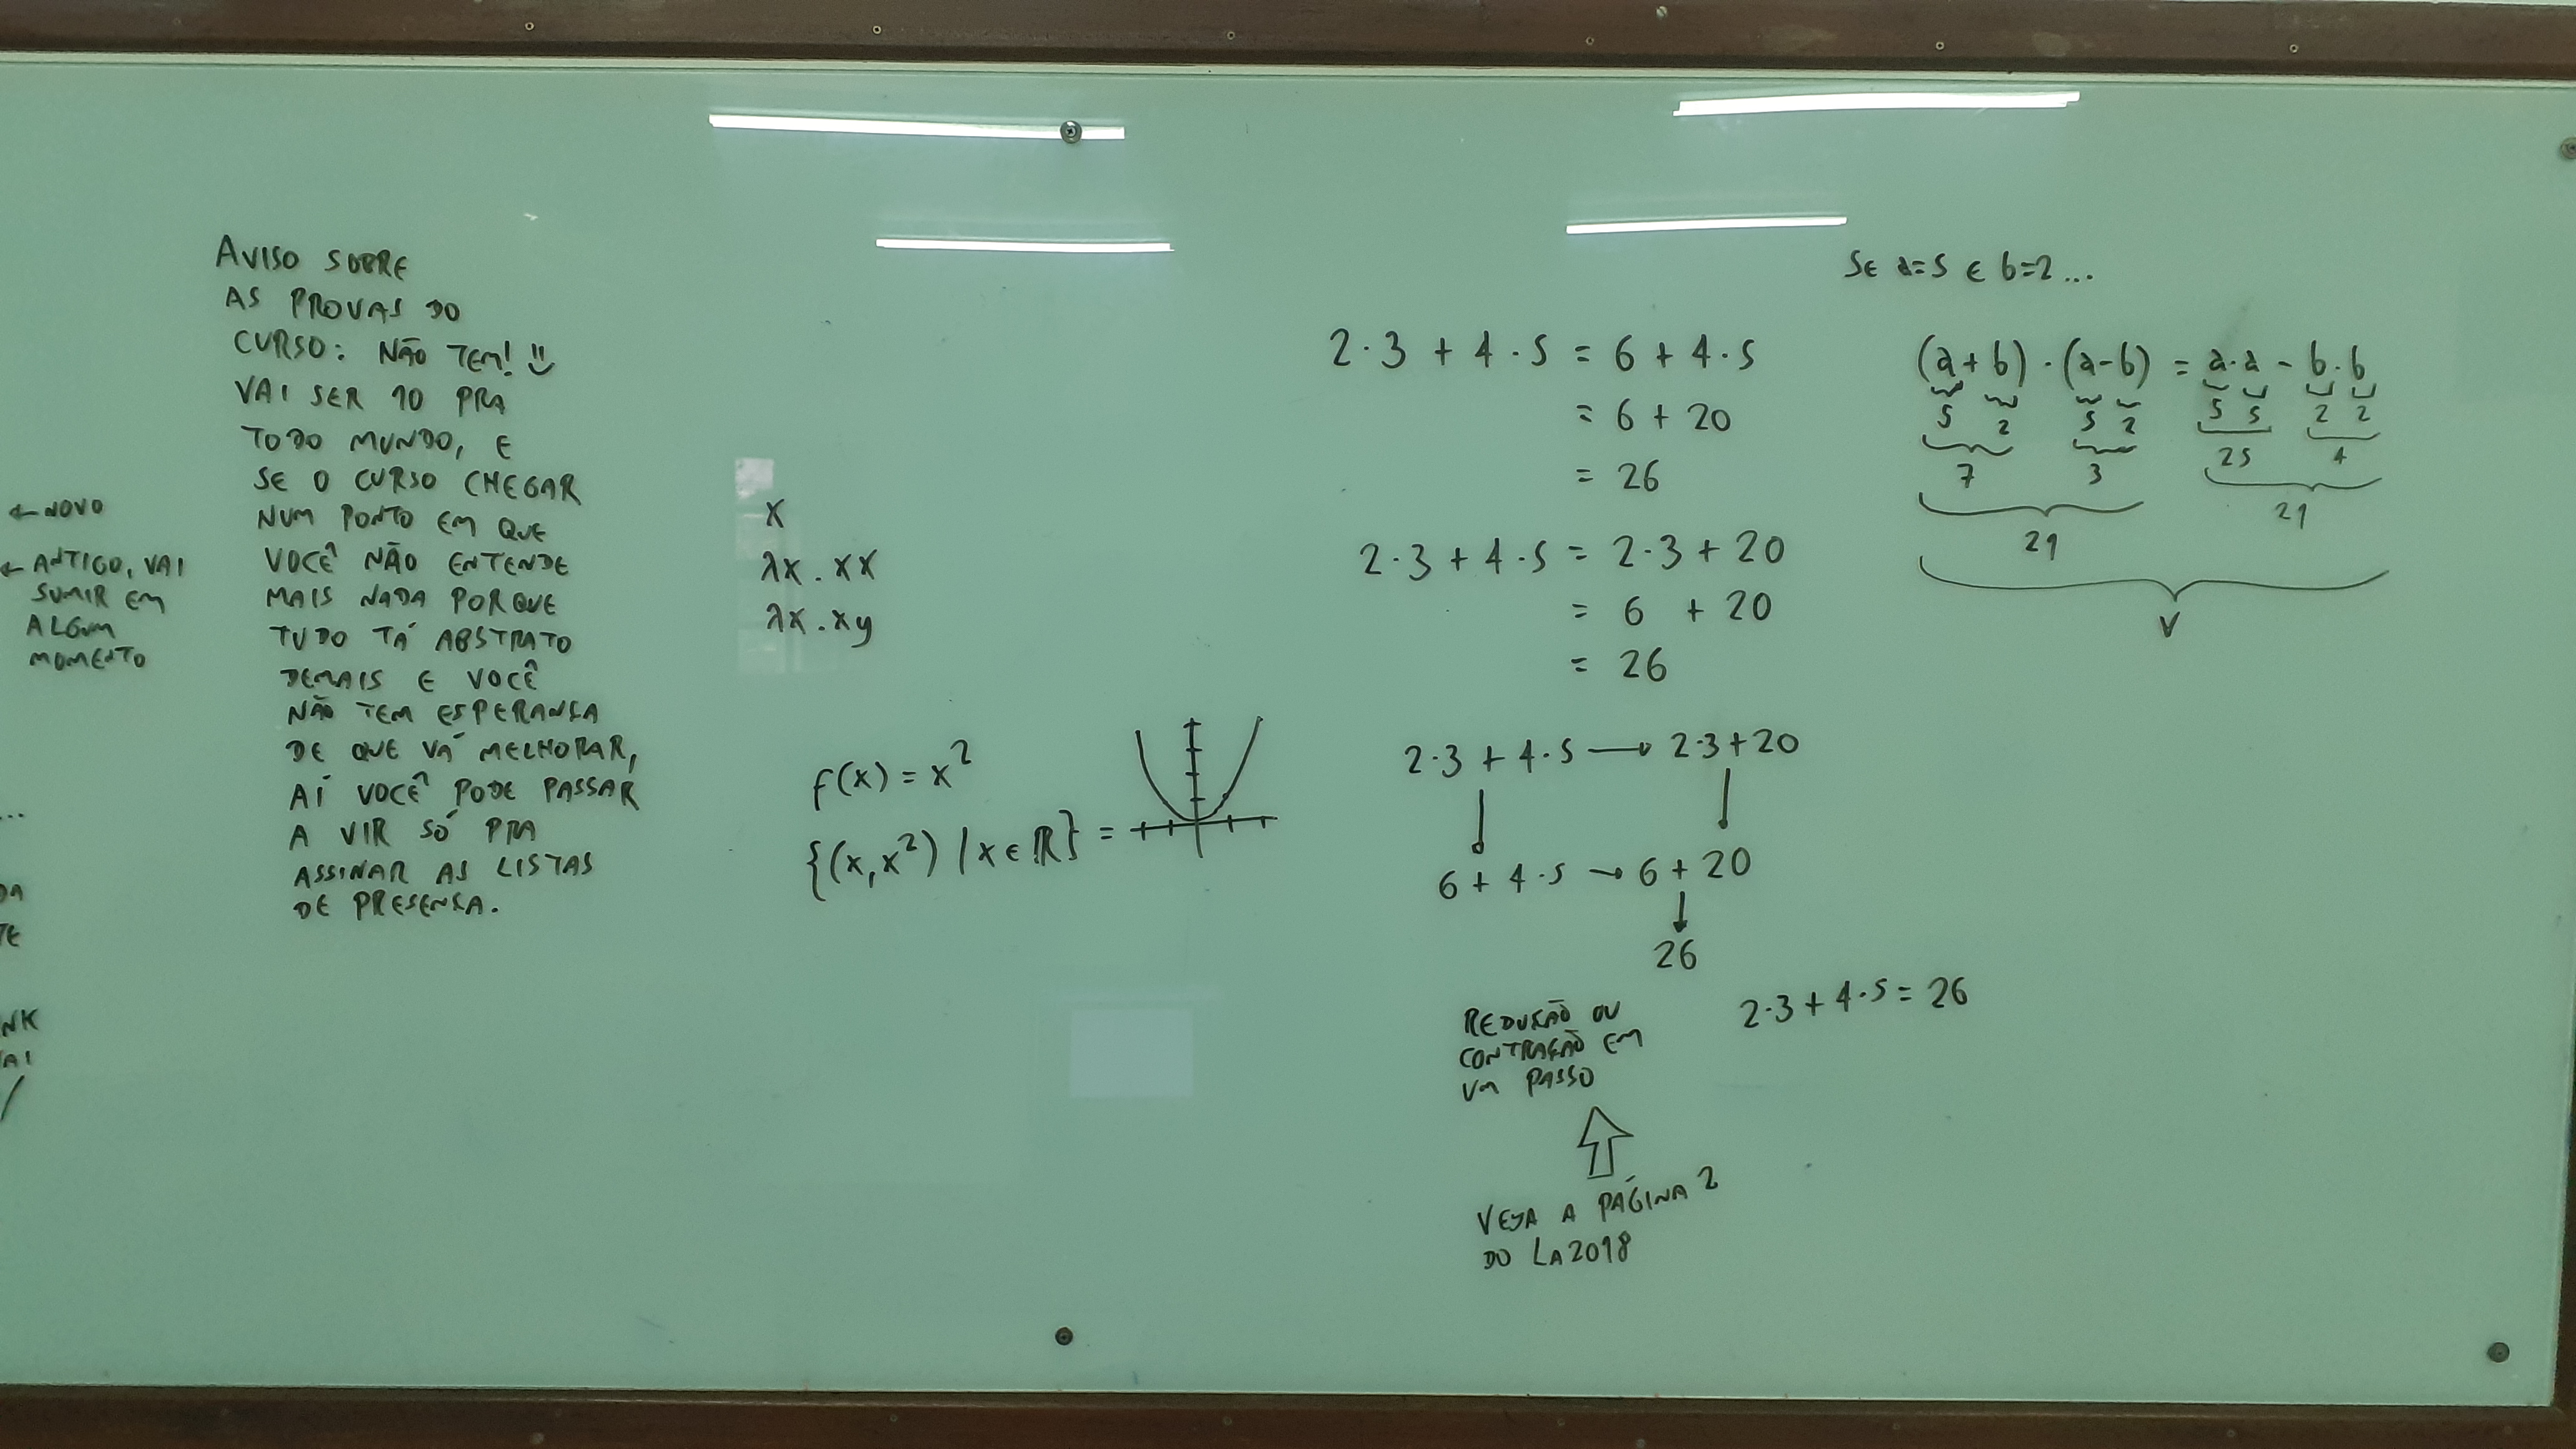 ← NOVO
← ANTIGO, VAI
SUMIR EM
ALGUM
MOMENTO
AVISO SOBRE
AS PROVAS DO
CURSO: NÃO TEM! :)
VAI SER 10 PRA
TODO MUNDO, E
SE O CURSO CHEGAR
NUM PONTO EM QUE
VOCÊ NÃO ENTENDE
MAIS NADA PORQUE
TUDO TÁ ABSTRATO
DEMAIS E VOCÊ
NÃO TEM ESPERANÇA
DE QUE VÁ MELHORAR,
AÍ VOCÊ PODE PASSAR
A VIR SÓ PRA
ASSINAR AS LISTAS
DE PRESENÇA.
x
λx.xx
λx.xy
f(x) = x²
{(x,x²) | x ∈ ℝ} =
2·3 + 4·5 = 6 + 4·5
= 6 + 20
= 26
2·3 + 4·5 = 2·3 + 20
= 6 + 20
= 26
2·3 + 4·5 → 2·3+20
↓ ↓
6 + 4·5 → 6 + 20
↓
26
2·3 + 4·5 = 26
REDUÇÃO OU
CONTRAÇÃO EM
UM PASSO
⇑
VEJA A PÁGINA 2
DO LA2018
SE a=5 E b=2...
(a+b)·(a-b) = a·a - b·b
5 2 5 2 5 5 2 2
7 3 25 4
21 21
V